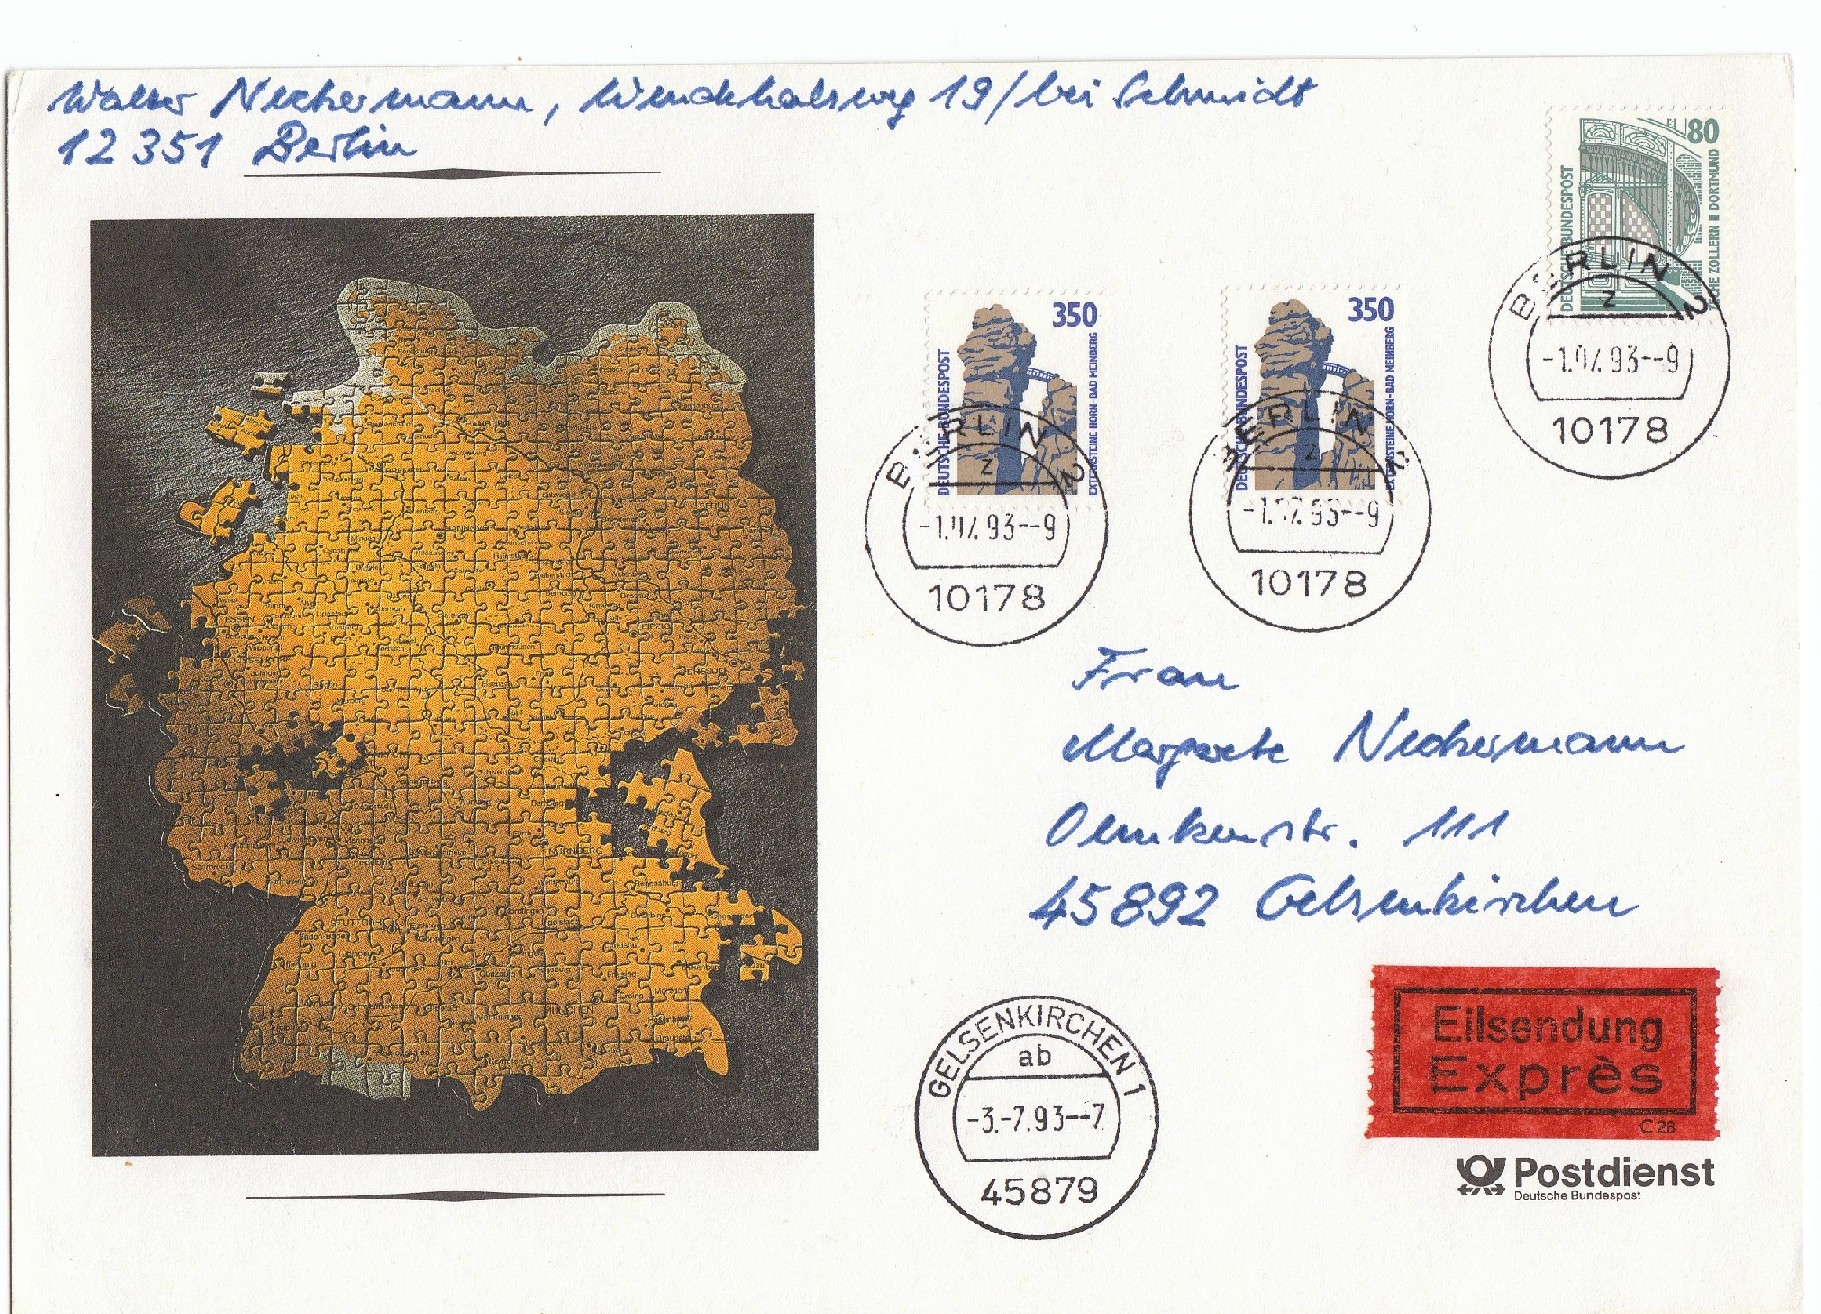 Walter Neckermann, Wendehalsweg 19/bei Schmidt
12351 Berlin
80
DEUTSCHE BUNDESPOST
ZOLLERN II DORTMUND
BERLIN 2
z
-1.07.93--9
10178
350
DEUTSCHE BUNDESPOST
EXTERNSTEINE HORN-BAD MEINBERG
BERLIN 2
z
-1.07.93--9
10178
350
DEUTSCHE BUNDESPOST
EXTERNSTEINE HORN-BAD MEINBERG
BERLIN 2
z
-1.07.93--9
10178
Frau
Margarete Neckermann
Oemkenstr. 111
45892 Gelsenkirchen
GELSENKIRCHEN 1
ab
-3.-7.93--7
45879
Eilsendung
Exprès
C 28
Postdienst
Deutsche Bundespost